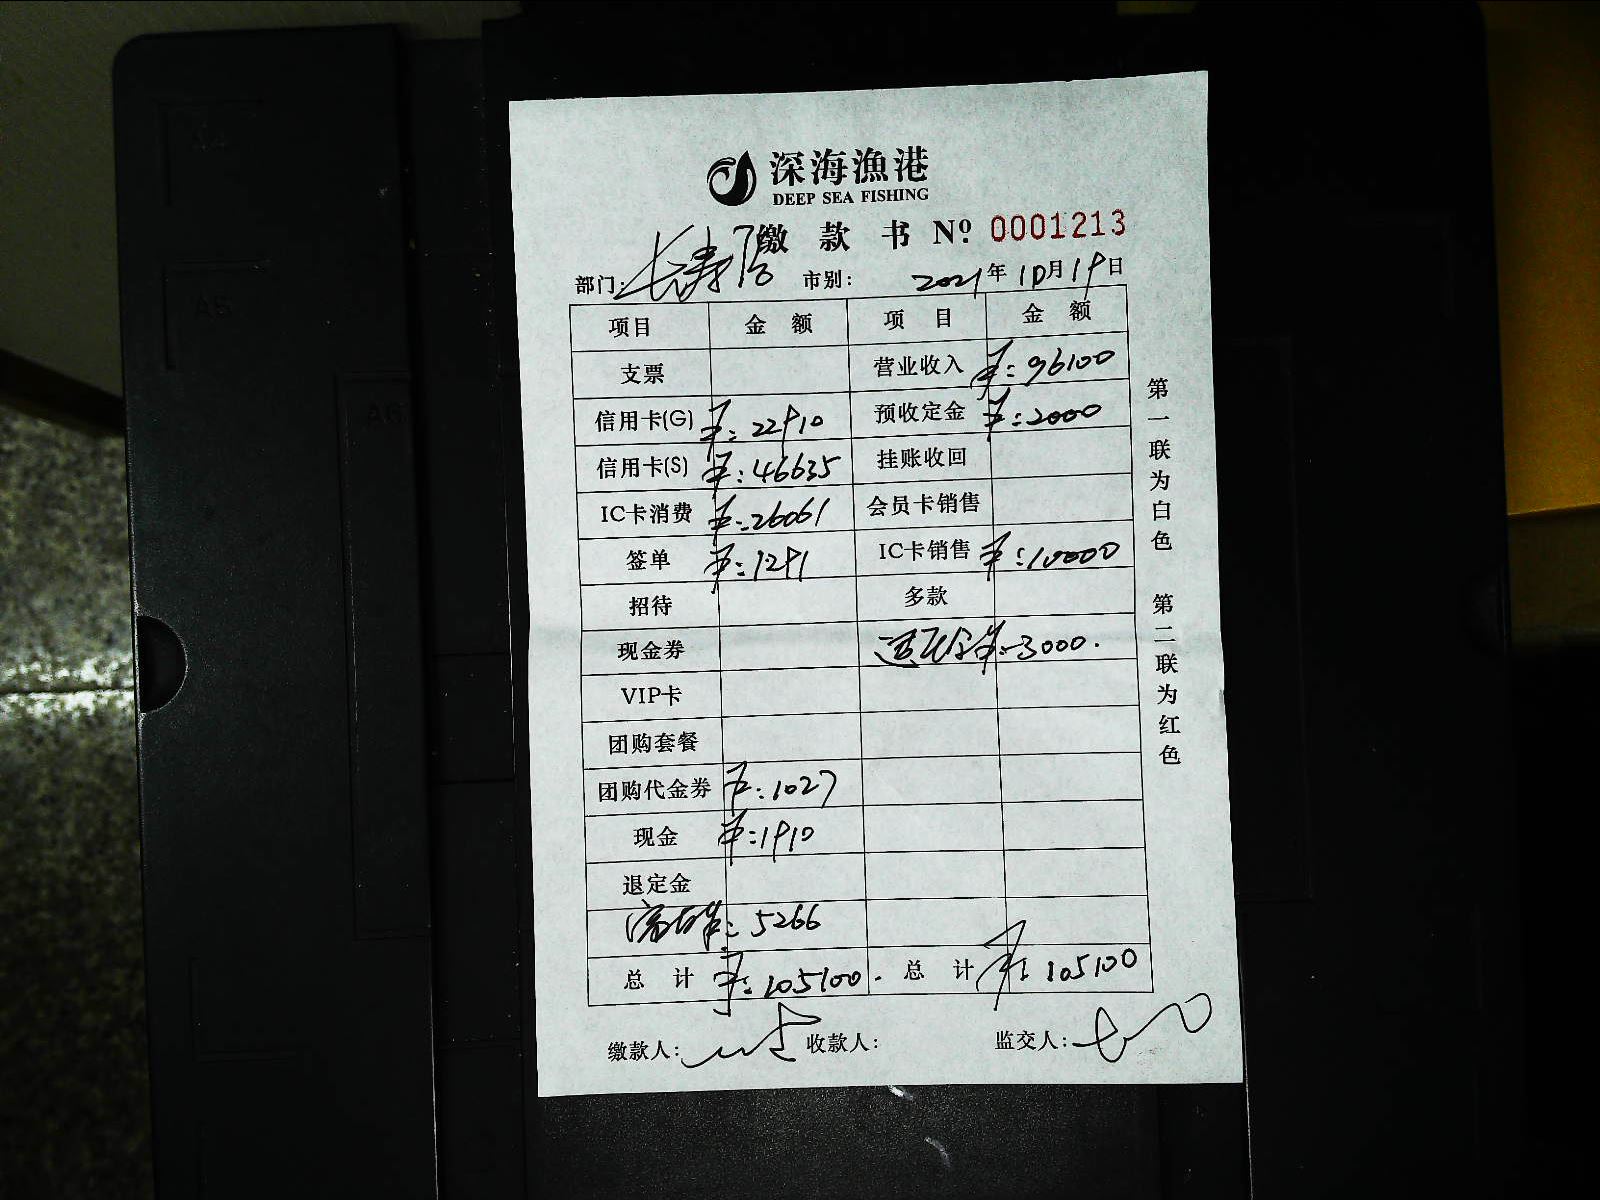 A4
A5
A6
深海渔港
DEEP SEA FISHING
缴款书 Nº 0001213
部门: 长寿 市别: 2021年10月19日
项目 金额 项目 金额
支票 营业收入 ¥:96100
信用卡(G) ¥:22910 预收定金 ¥:2000
信用卡(S) ¥:46635 挂账收回
IC卡消费 ¥:26061 会员卡销售
签单 ¥:1291 IC卡销售 ¥:10000
招待 多款
现金券 退定金 ¥:-3000.
VIP卡
团购套餐
团购代金券 ¥:1027
现金 ¥:1910
退定金
¥:5266
总计 ¥:105100. 总计 ¥:105100
缴款人: 收款人: 监交人:
第一联为白色 第二联为红色